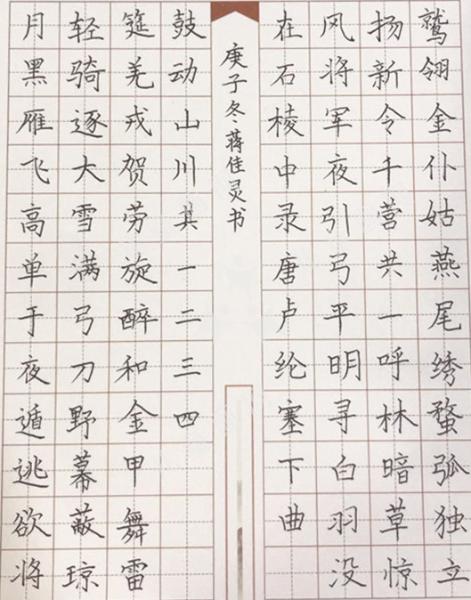 鹫翎金仆姑燕尾绣蝥弧独立
扬新令千营共一呼林暗草惊
风将军夜引弓平明寻白羽没
在石棱中录唐卢纶塞下曲
月黑雁飞高单于夜遁逃欲将
轻骑逐大雪满弓刀野幕蔽琼
筵羌戎贺劳旋醉和金甲舞雷
鼓动山川其一二三四
庚子冬蒋佳灵书